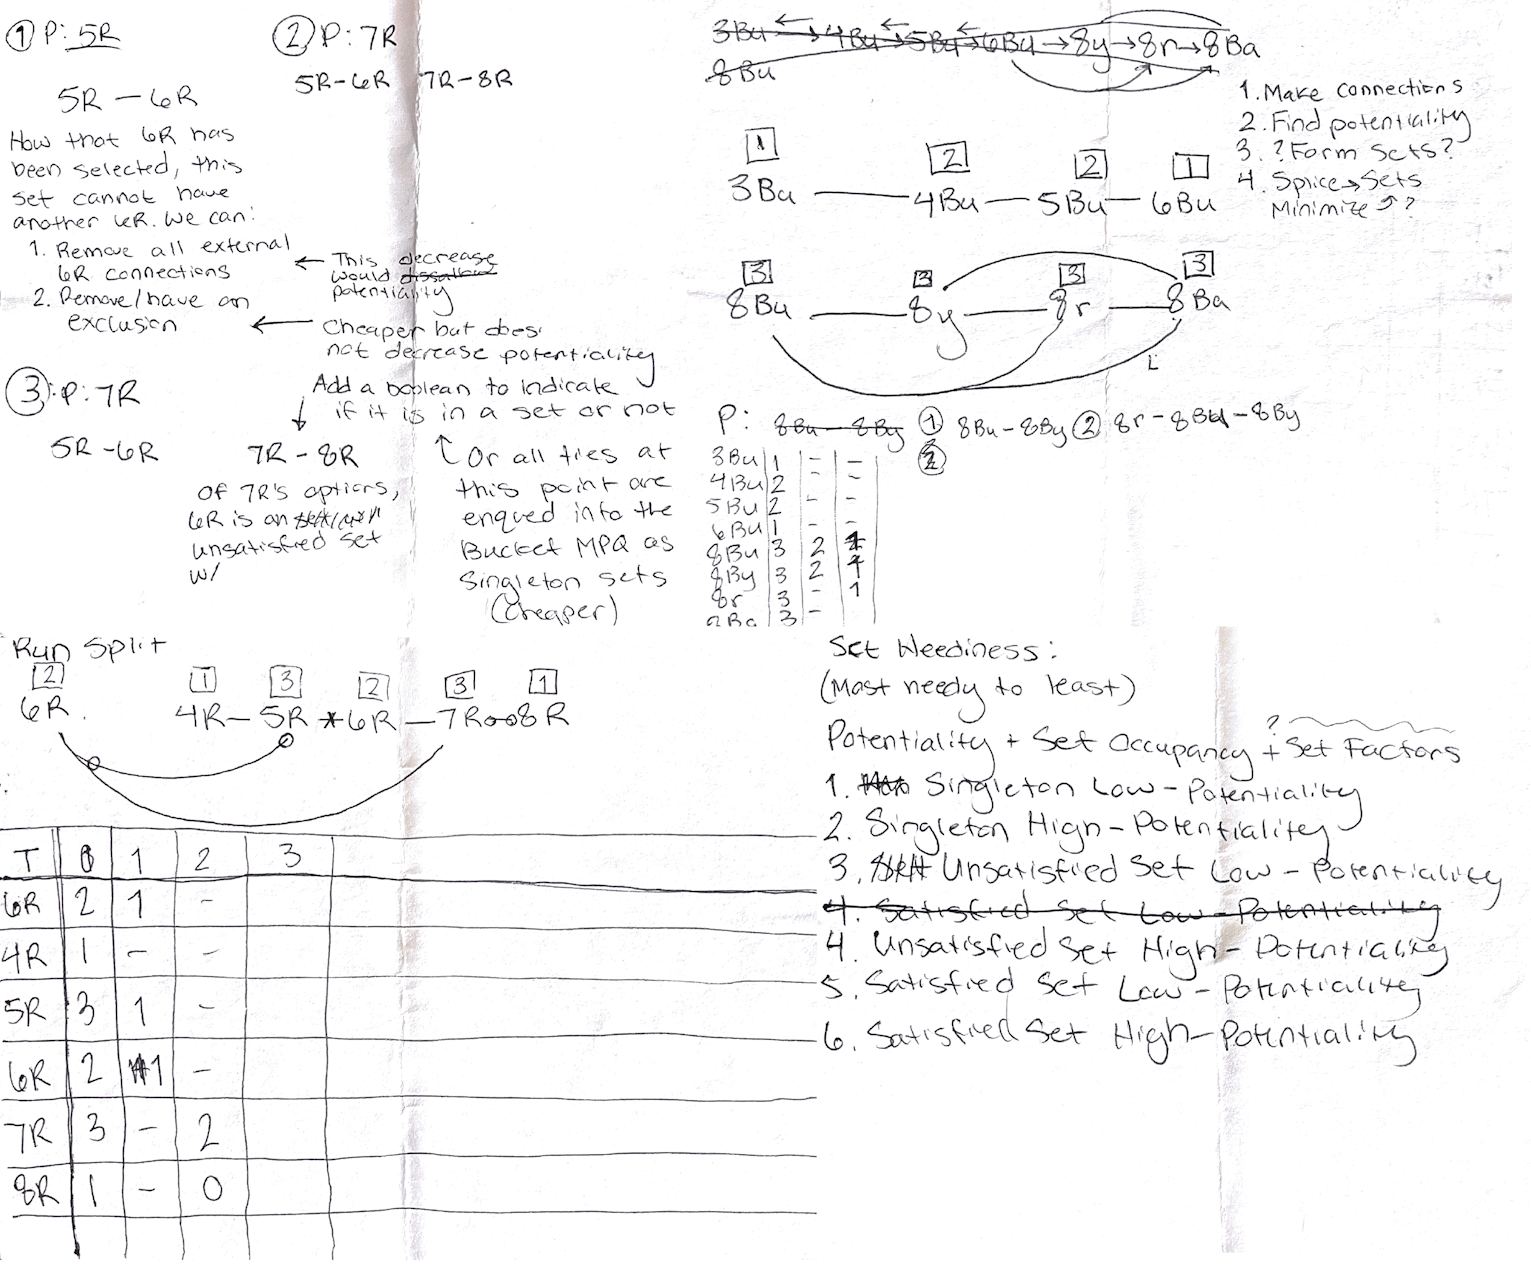 ① P: 5R
5R - 6R
Now that 6R has
been selected, this
set cannot have
another 6R. We can:
1. Remove all external
6R connections
2. Remove/have an
exclusion
← This decrease
would
potentiality
← Cheaper but does
not decrease potentiality
② P: 7R
5R-6R 7R-8R
③: P: 7R
5R-6R
Add a boolean to indicate
if it is in a set or not
7R-8R
Of 7R's options,
6R is an
unsatisfied set
w/
Or all ties at
this point are
enqued into the
Bucket MPQ as
Singleton sets
(Cheaper)
3Bu → 4Bu → 5Bu → 6Bu → 8y → 8r → 8Ba
8Bu
1. Make connections
2. Find potentiality
3. ? Form Sets?
4. Splice → Sets
Minimize ?
1 2 2 1
3Bu — 4Bu — 5Bu — 6Bu
3 3 3 3
8Bu — 8y — 8r — 8Ba
L
P: 8Bu - 8By ① 8Bu-8By ② 8r-8Bu-8By
3Bu 1 - -
4Bu 2 - -
5Bu 2 - -
6Bu 1 - -
8Bu 3 2 1
8By 3 2 1
8r 3 - 1
8Ba 3 -
Run Split
2 1 3 2 3 1
6R 4R - 5R * 6R - 7R 8R
T 0 1 2 3
6R 2 1 -
4R 1 - -
5R 3 1 -
6R 2 1 -
7R 3 - 2
8R 1 - 0
Set Neediness:
(Most needy to least)
Potentiality + Set Occupancy + ? Set Factors
1. Singleton Low-Potentiality
2. Singleton High-Potentiality
3. Unsatisfied Set Low-Potentiality
4. Satisfied Set Low-Potentiality
4. Unsatisfied Set High-Potentiality
5. Satisfied Set Low-Potentiality
6. Satisfied Set High-Potentiality